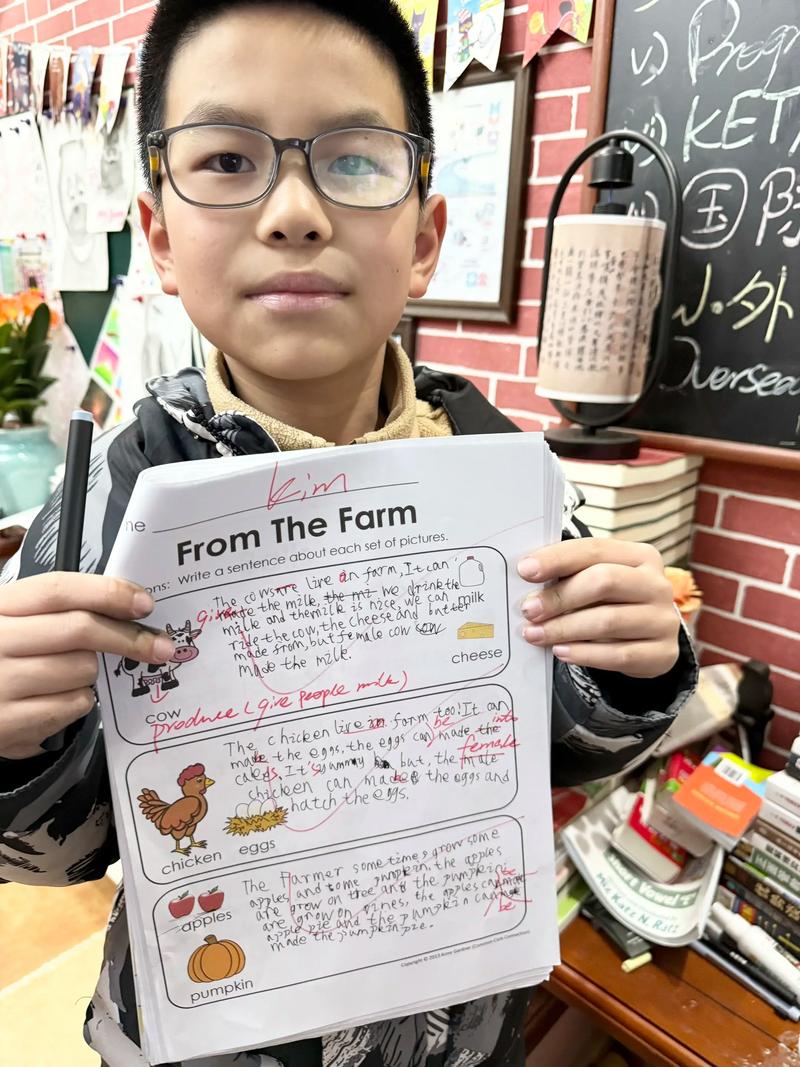 Kim
From The Farm
ons: Write a sentence about each set of pictures.
The cows are live on farm, It can
give made the milk, the mi we drink the
milk and the milk is nice, we can
ride the cow, the cheese and butter
made from, but female cow cow
made the milk.
milk
cheese
cow
produce (give people milk)
The chicken live in farm too! It can
be into
made the eggs, the eggs can made the
female
cakes, It's yummy but, the male
chicken can made the eggs and
hatch the eggs.
chicken eggs
The Farmer sometimes grow some
apples and some pumpkin, the apples
are grow on tree and the pumpkin
are grow on vines, the apples can made
be
apple pie and the pumpkin can
be
made the pumpkin pie.
apples
pumpkin
KET
国际
小·外
Oversea